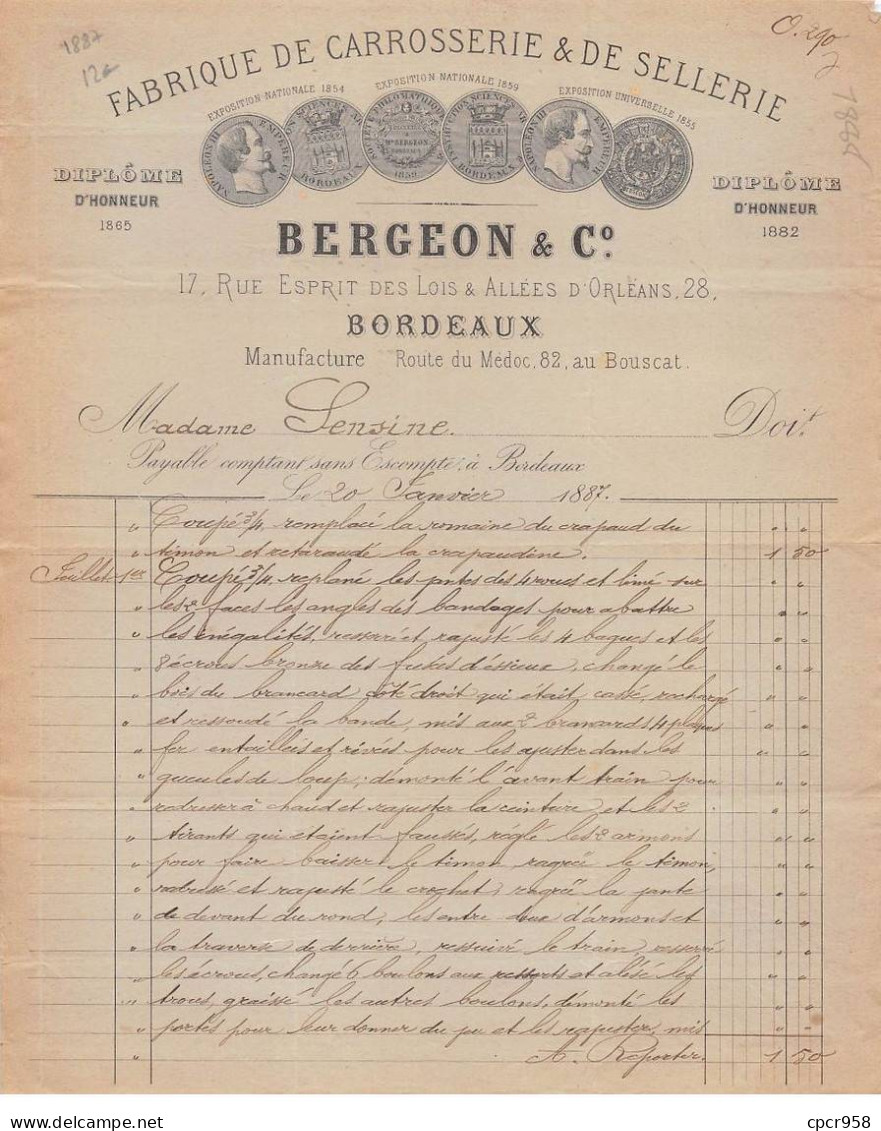 1887
12
O. 290
7
1887
FABRIQUE DE CARROSSERIE & DE SELLERIE
EXPOSITION NATIONALE 1854
EXPOSITION NATIONALE 1859
EXPOSITION UNIVERSELLE 1855
NAPOLEON III EMPEREUR
BORDEAUX
SOCIÉTÉ PHILOMATHIQUE
BERGEON
1859
BORDEAUX
NAPOLEON III EMPEREUR
DIPLÔME
D'HONNEUR
1865
DIPLÔME
D'HONNEUR
1882
BERGEON & Cº.
17, RUE ESPRIT DES LOIS & ALLÉES D'ORLÉANS, 28,
BORDEAUX
Manufacture Route du Médoc, 82, au Bouscat.
Madame Sensine. Doit
Payable comptant sans Escompte, à Bordeaux
Le 20 Janvier 1887.
" Coupé 3/4, remplacé la romaine du crapaud du " "
" timon et retaraudé la crapaudine. 1 50
Juillet 1er Coupé 3/4, replané les jantes des 4 roues et limé sur " "
" les 2 faces les angles des bandages pour abattre " "
" les inégalités, resserré et rajusté les 4 bagues et les " "
" 8 écrous bronze des fusées d'essieux, changé le " "
" bois du brancard côté droit qui était cassé, rechargé " "
" et ressoudé la bande, mis aux 2 brancards 4 plaques " "
" fer entaillées et rivées pour les ajuster dans les " "
" gueules de loup; démonté l'avant train pour " "
" redresser à chaud et rajuster la ceinture et les 2 " "
" tirants qui etaient faussés, réglé les 2 armons " "
" pour faire baisser le timon, ragréé le timon, " "
" redressé et rajusté le crochet, ragréé la jante " "
" de devant du rond, les entre deux d'armons et " "
" la traverse de derrière, ressuivé le train, resserré " "
" les écrous, changé 6 boulons aux ressorts et alésé les " "
" trous, graissé les autres boulons, démonté les " "
" portes pour leur donner du jeu et les rajuster, mis " "
" A Reporter. 1 50
cpcr958